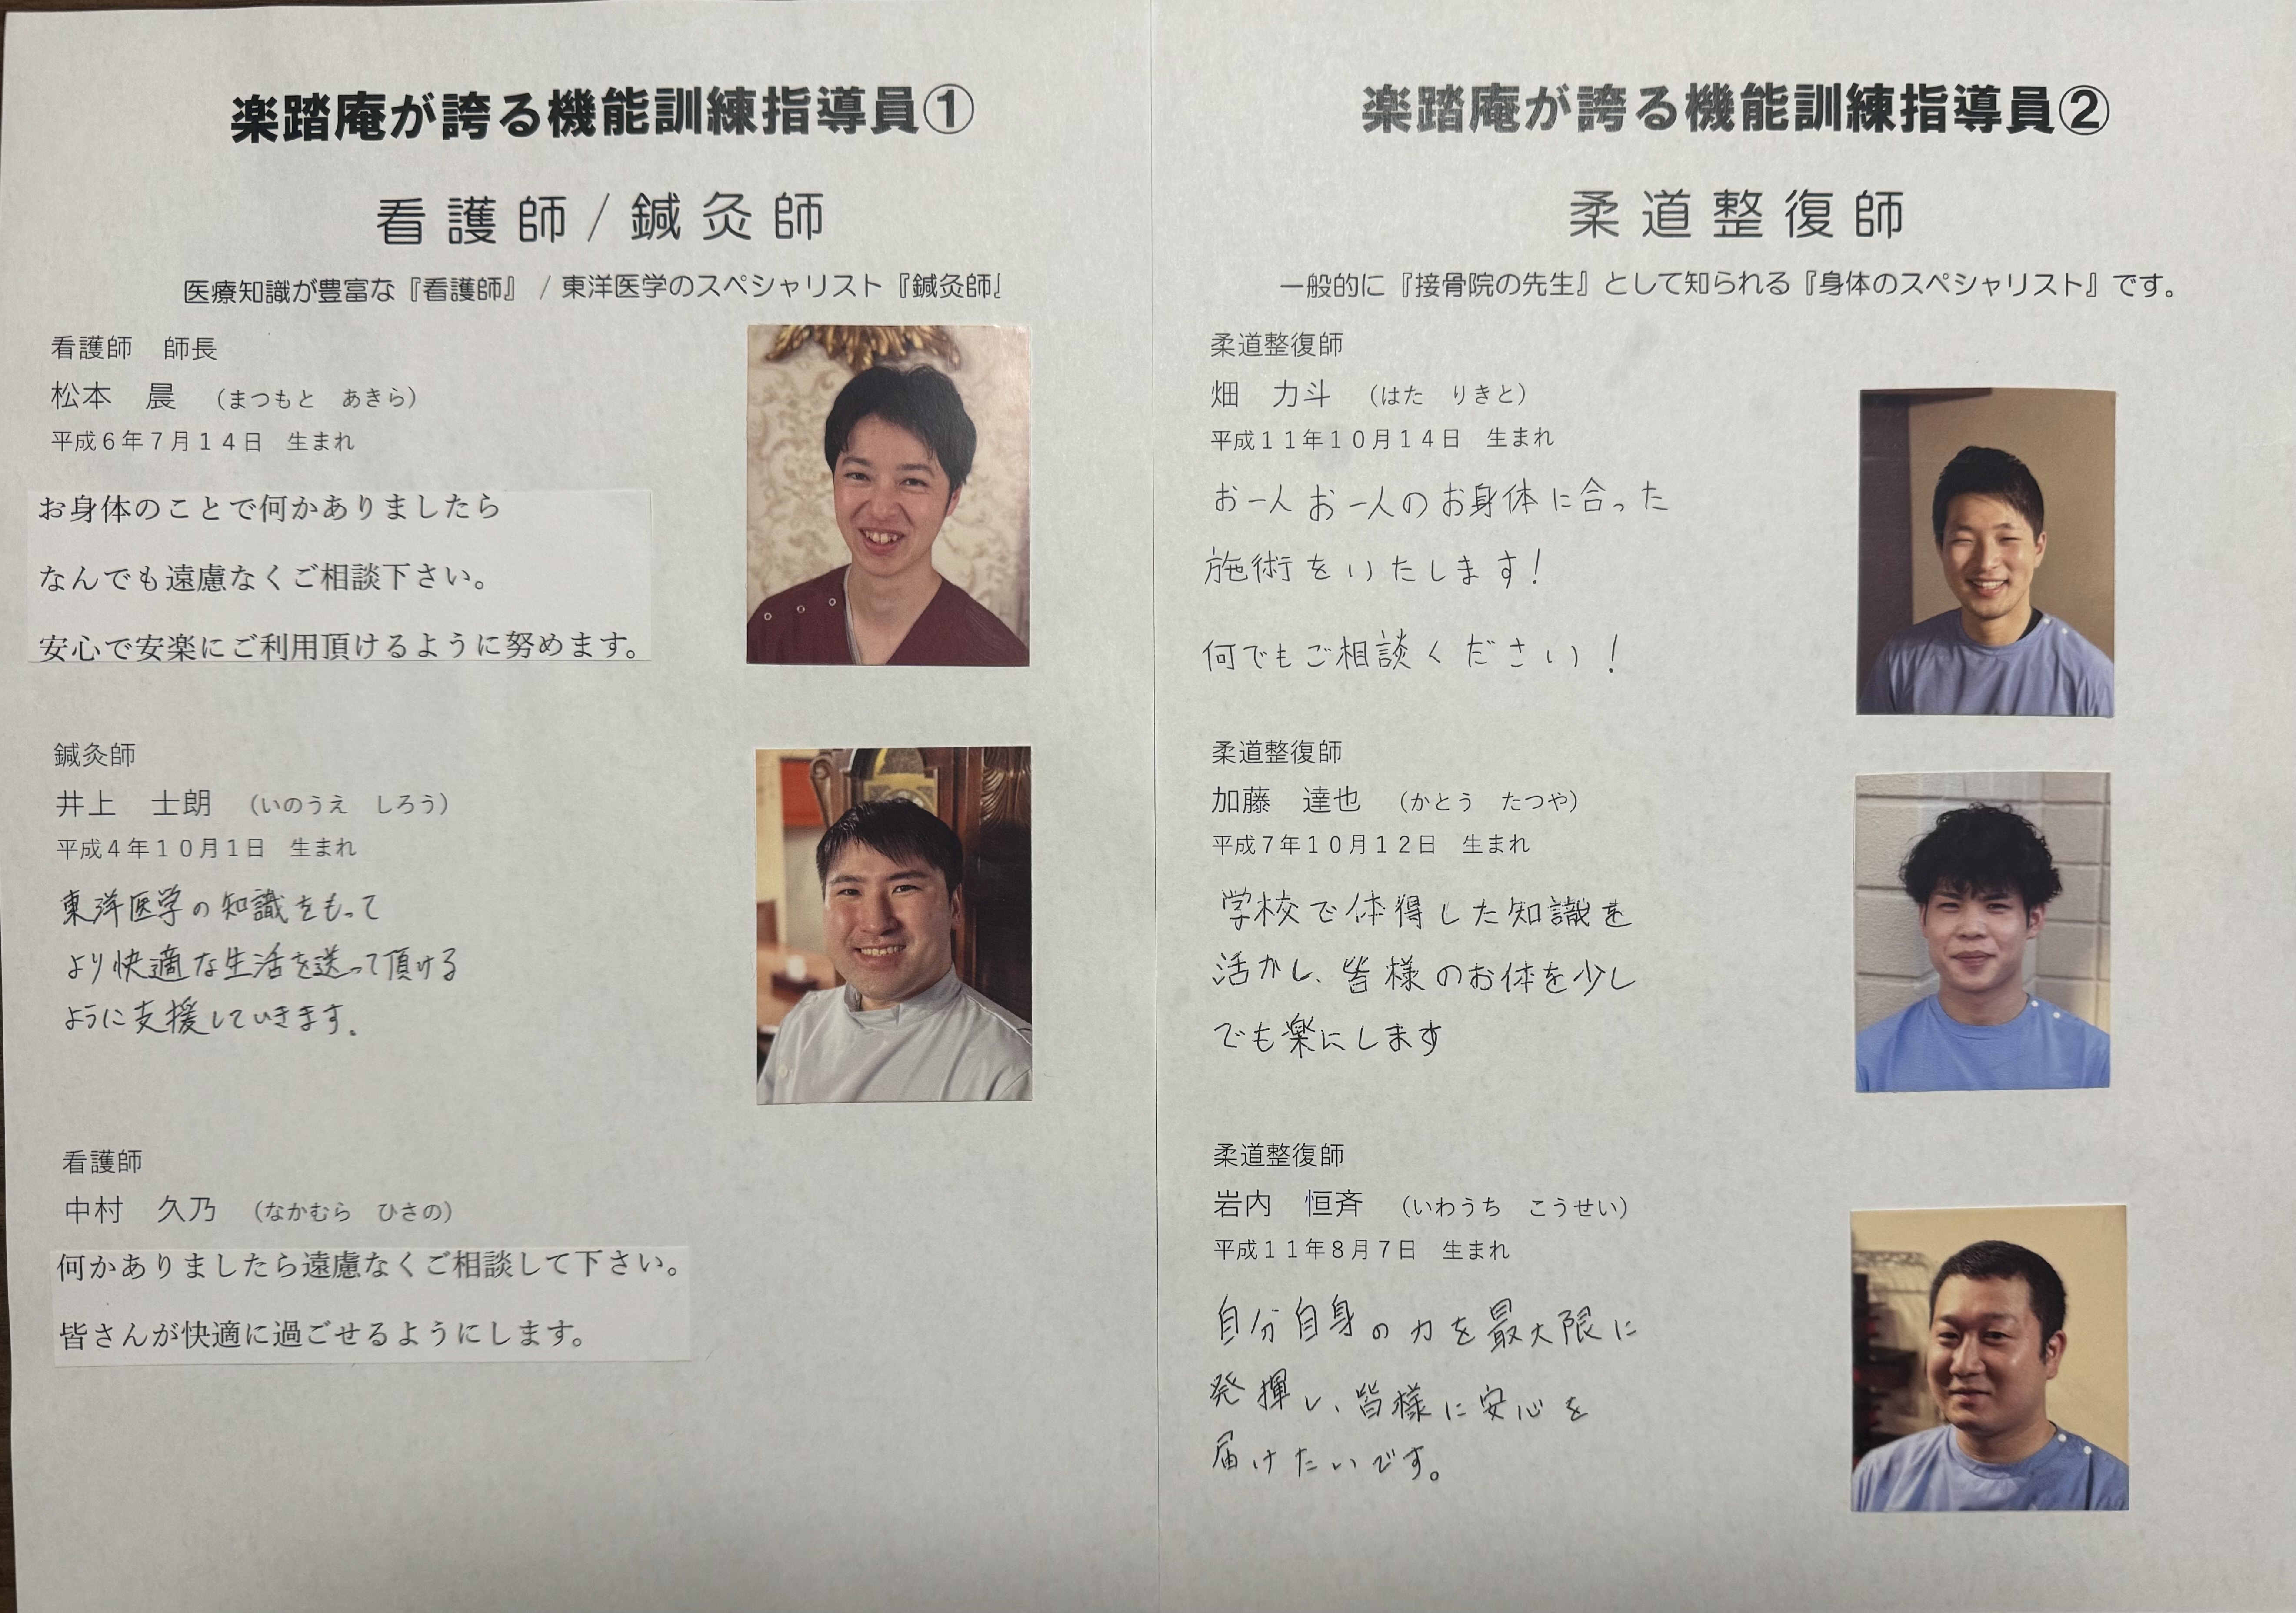 楽踏庵が誇る機能訓練指導員①
看護師/鍼灸師
医療知識が豊富な『看護師』 / 東洋医学のスペシャリスト『鍼灸師』
看護師　師長
松本　晨　（まつもと　あきら）
平成６年７月１４日　生まれ
お身体のことで何かありましたら
なんでも遠慮なくご相談下さい。
安心で安楽にご利用頂けるように努めます。
鍼灸師
井上　士朗　（いのうえ　しろう）
平成４年１０月１日　生まれ
東洋医学の知識をもって
より快適な生活を送って頂ける
ように支援していきます。
看護師
中村　久乃　（なかむら　ひさの）
何かありましたら遠慮なくご相談して下さい。
皆さんが快適に過ごせるようにします。
楽踏庵が誇る機能訓練指導員②
柔道整復師
一般的に『接骨院の先生』として知られる『身体のスペシャリスト』です。
柔道整復師
畑　力斗　（はた　りきと）
平成１１年１０月１４日　生まれ
お一人お一人のお身体に合った
施術をいたします！
何でもご相談ください！
柔道整復師
加藤　達也　（かとう　たつや）
平成７年１０月１２日　生まれ
学校で体得した知識を
活かし、皆様のお体を少し
でも楽にします
柔道整復師
岩内　恒斉　（いわうち　こうせい）
平成１１年８月７日　生まれ
自分自身の力を最大限に
発揮し、皆様に安心を
届けたいです。